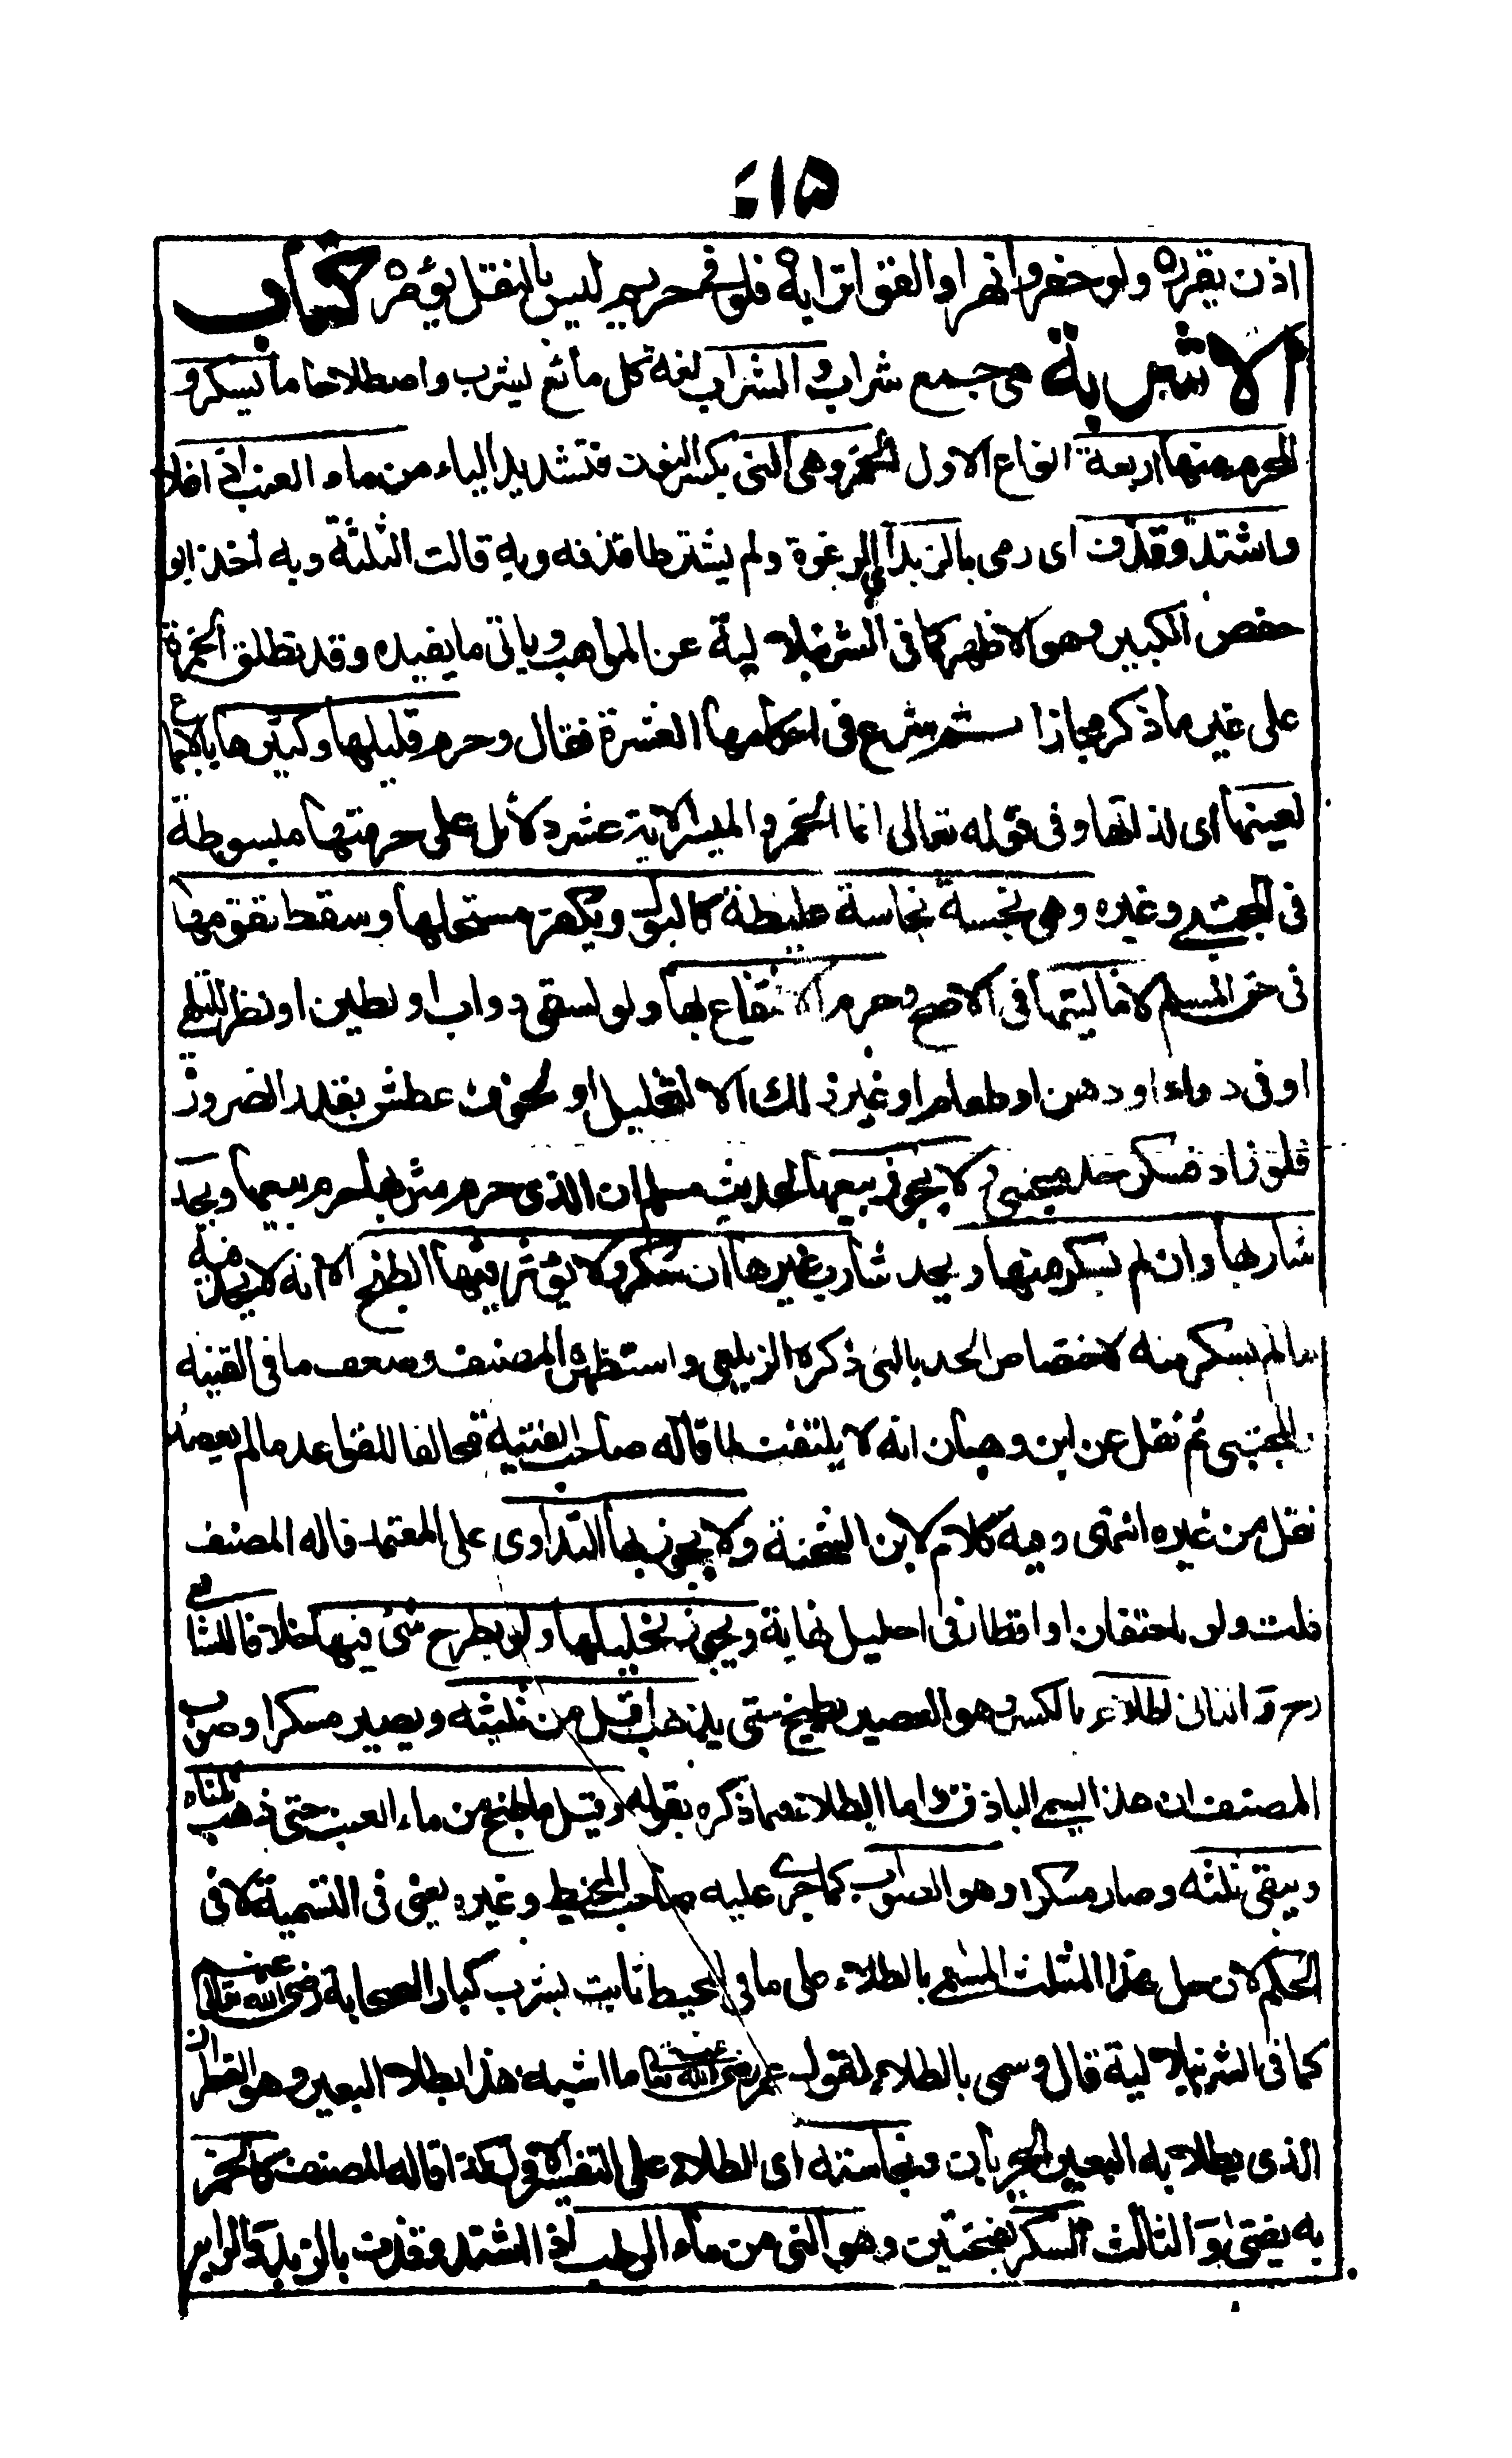 ٥١٤
اذن بقراره ولو حفروا نهرا والقوا ترابه فلو فى حريم ليس بالنقل يؤمر كتاب
الاشربة هى جمع شراب و الشراب لغة كل مائع يشرب واصطلاحا ما يسكر و
المحرم منها اربعة انواع الاول الخمر وهى النى بكسر النون فتشديد الياء من ماء العنب اذا غلا
واشتد وقذف اى رمى بالزبد اى الرغوة ولم يشترطا قذفه وبه قالت الثلثة وبه اخذ ابو
حفص الكبير وهو الاظهر كما فى الشرنبلا لية عن المواهب وياتى ما يفيده وقد تطلق الخمرة
على غير ما ذكر مجازا ثم شرع فى احكامها العشرة فقال وحرم قليلها وكثيرها بالاجماع
لعينها اى لذاتها وفى قوله تعالى انما الخمر والميسر الاية عشر دلائل على حرمتها مبسوطة
فى المجتبى وغيره وهى نجسة نجاسة غليظة كالبول ويكفر مستحلها وسقط تقومها
فى حق المسلم لا ماليتها فى الاصح وحرم الانتفاع بها ولو لسقى دواب او لطين او نظر للتلهى
او فى دواء او دهن او طعام او غير ذلك الا لتخليل او لخوف عطش بقدر الضرورة
فلو زاد فسكر حد مجتبى و لا يجوز بيعها لحديث مسلم ان الذى حرم شربها حرم بيعها ويحد
شاربها وان لم يسكر منها ويحد شارب غيرها ان سكر ولا يؤثر فيها الطبخ الا انه لا يحد فيه
ما لم يسكر منه لاختصاص الحد بالنى ذكره الزيلعى واستظهره المصنف وضعف ما فى القنية
والمجتبى ثم نقل عن ابن وهبان انه لا يلتفت لما قاله صاحب القنية مخالفا للقواعد ما لم يعضده
نقل من غيره انتهى وفيه كلام لابن الشحنة ولا يجوز بها التداوى على المعتمد قاله المصنف
قلت ولو باحتقان او اقطار فى احليل نهاية ويجوز تخليلها ولو بطرح شئ فيها خلافا للشافعى
رح و الثانى الطلاء بالكسر وهو العصير يطبخ حتى يذهب اقل من ثلثيه ويصير مسكرا وصوب
المصنف ان هذا يسمى الباذق واما الطلاء فما ذكره بقوله وقيل ما طبخ من ماء العنب حتى ذهب ثلثاه
ويبقى ثلثه وصار مسكرا وهو الصواب كما جرى عليه صاحب المحيط وغيره يعنى فى التسمية لا فى
الحكم لان حل هذا المثلث المسمى بالطلاء على ما فى المحيط ثابت بشرب كبار الصحابة رضى الله تعالى عنهم
كما فى الشرنبلا لية قال وسمى بالطلاء لقول عمر رضى الله تعالى عنه ما اشبه هذا بطلاء البعير وهو القطران
الذى يطلا به البعير الجربان ونجاسته اى الطلاء على التفسير الاول كذا قاله المصنف كالخمر
به يفتى و الثالث السكر بفتحتين وهو النى من ماء الرطب اذا اشتد وقذف بالزبد والرابع